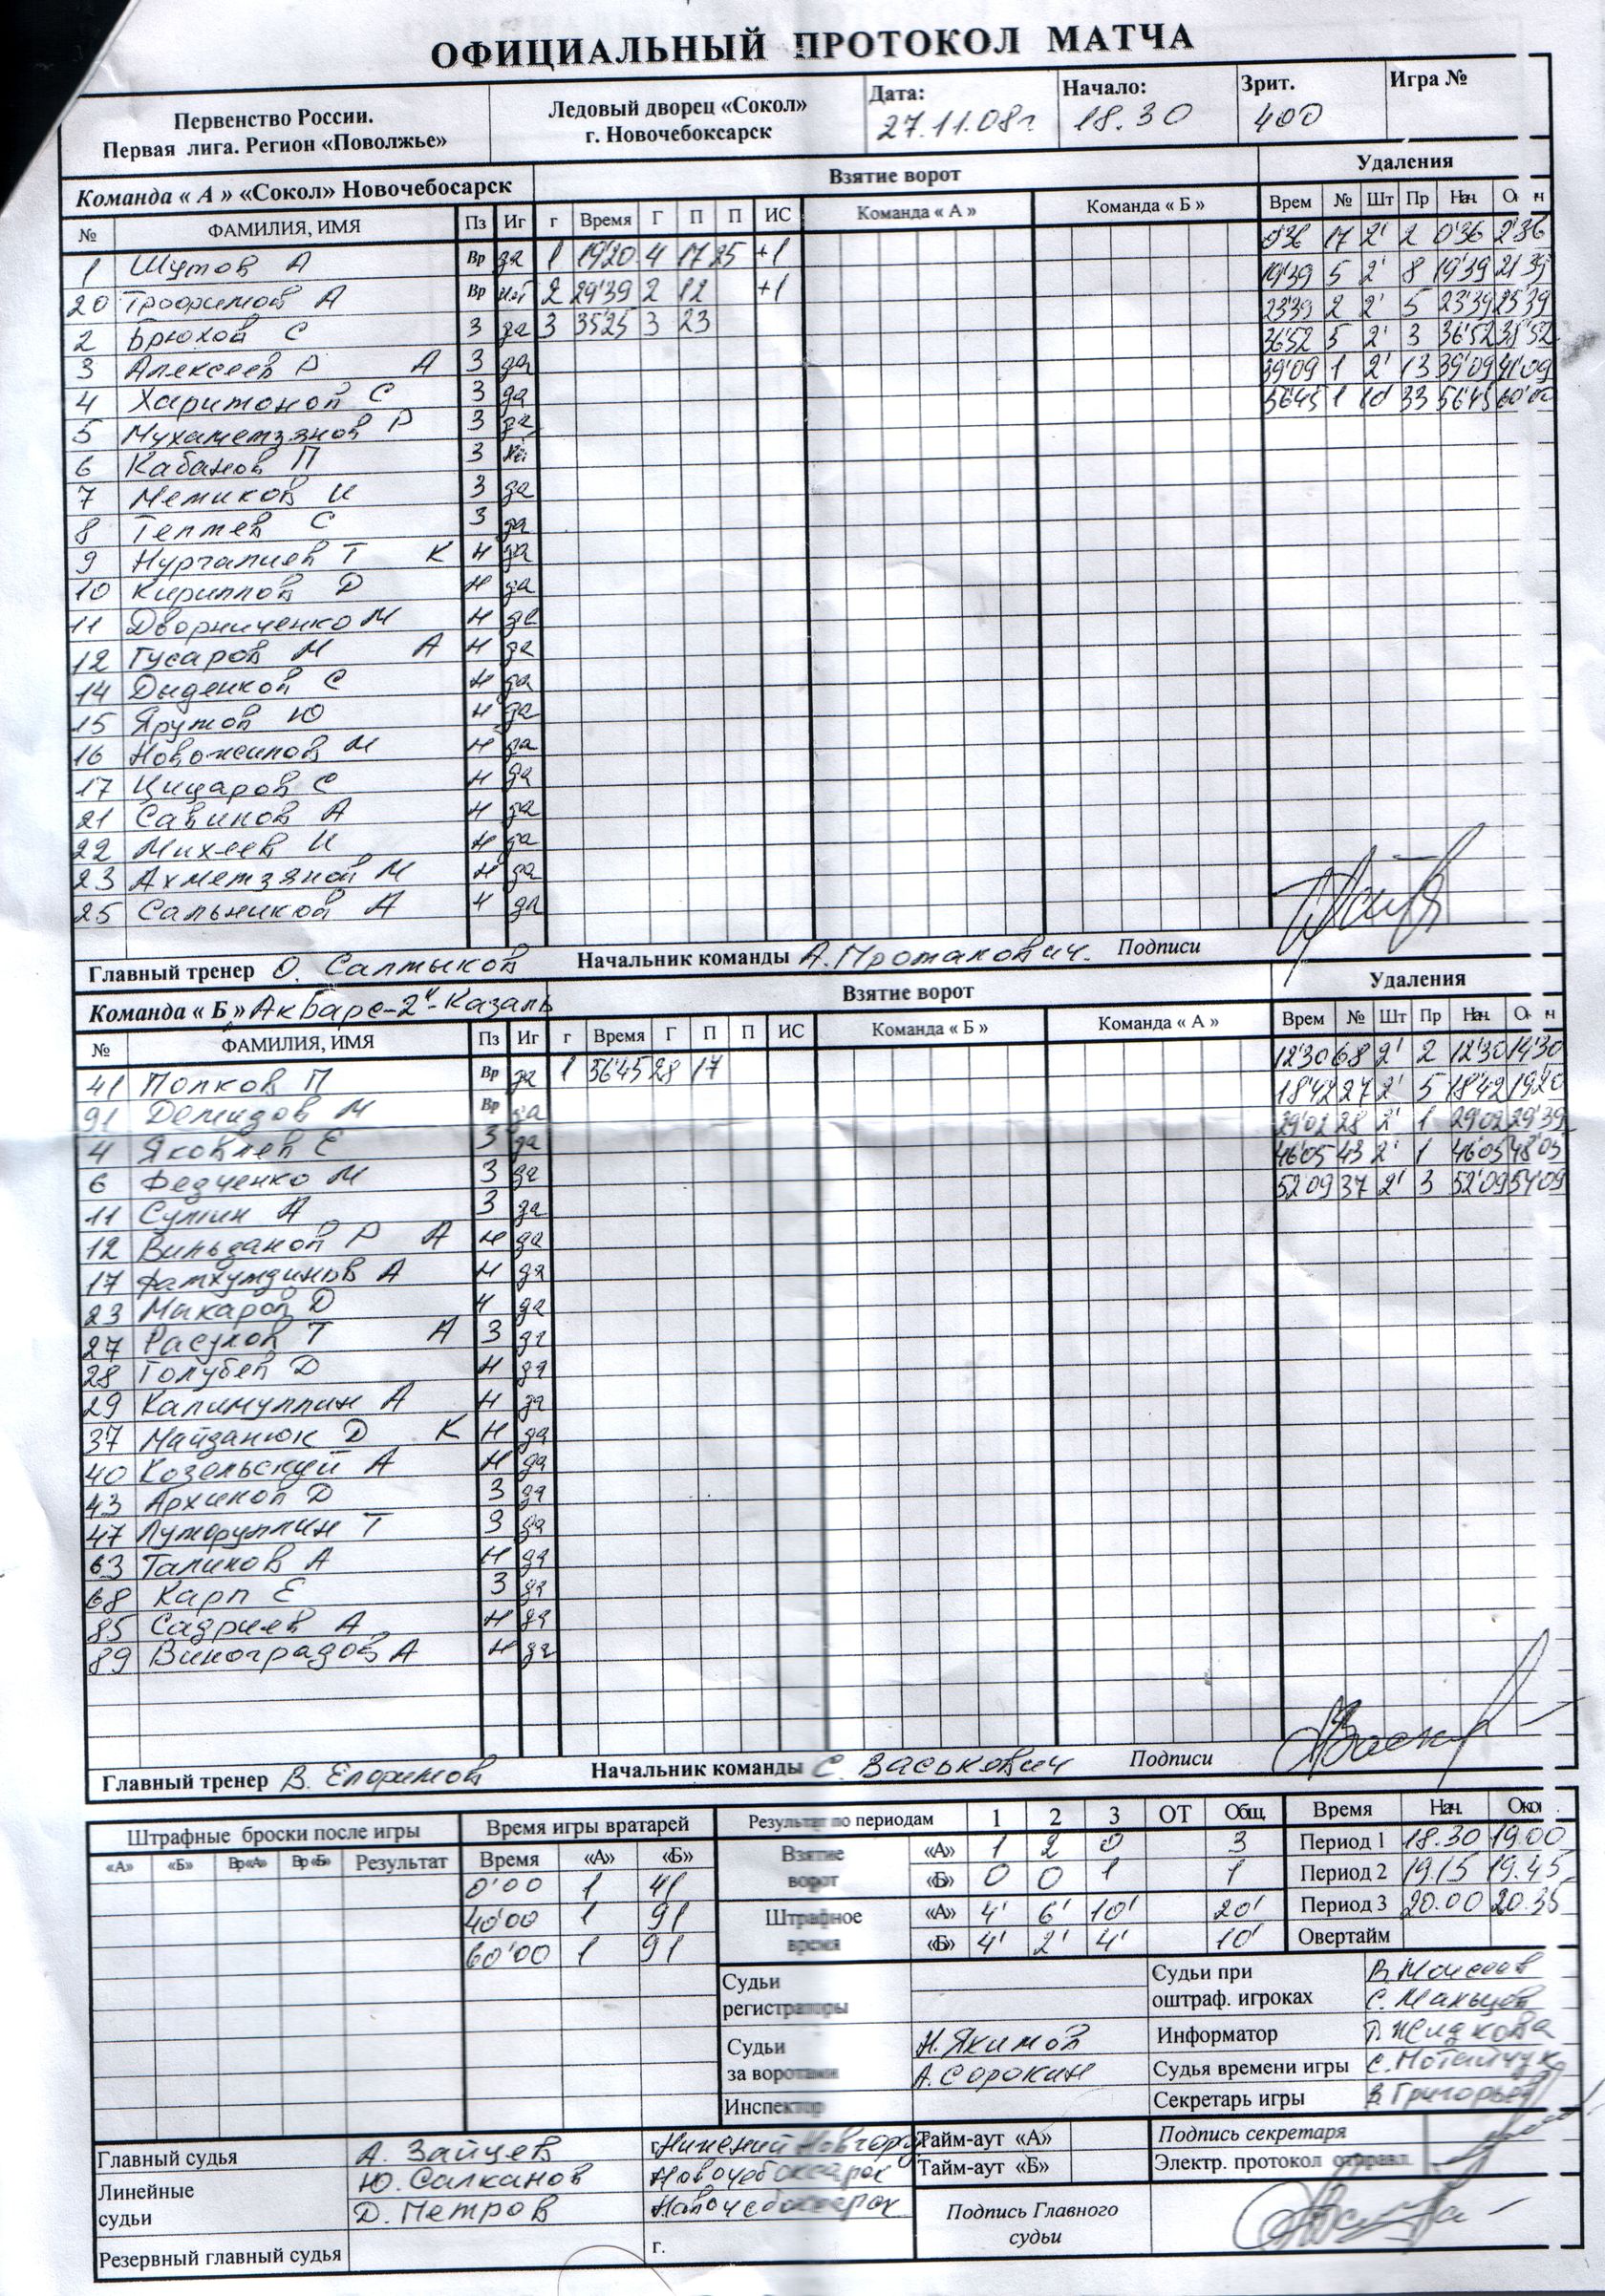 ОФИЦИАЛЬНЫЙ ПРОТОКОЛ МАТЧА
Первенство России.
Первая лига. Регион «Поволжье»
Ледовый дворец «Сокол»
г. Новочебоксарск
Дата: 27.11.08г.
Начало: 18.30
Зрит. 400
Игра №
Команда « А » «Сокол» Новочебосарск
Взятие ворот
Удаления
№ ФАМИЛИЯ, ИМЯ Пз Иг г Время Г П П ИС Команда « А » Команда « Б » Врем № Шт Пр Нач.
1 Шутов А Вр да 1 19'20 4 17 25 +1 0'36 17 2' 2 0'36 2'36
20 Трофимов А Вр нет 2 29'39 2 12 +1 19'39 5 2' 8 19'39 21'39
2 Брюхов С З да 3 35'25 3 23 23'39 2 2' 5 23'39 25'39
3 Алексеев Р А З да 36'52 5 2' 3 36'52 38'52
4 Харитонов С З да 39'09 1 2' 13 39'09 41'09
5 Мухаметзянов Р З да 56'45 1 10' 33 56'45 60'00
6 Кабанов П З нет
7 Немиков И З да
8 Теплев С З да
9 Нургалиев Т К Н да
10 Кириллов D Н да
11 Дворниченко М Н да
12 Гусаров М А Н да
14 Дыденков С Н да
15 Ярутов Ю Н да
16 Новожилов М Н да
17 Цицаров С Н да
21 Савинов А Н да
22 Михеев И Н да
23 Ахметзянов М Н да
25 Сальников А Н да
Главный тренер О. Салтыков Начальник команды А. Протакович. Подписи
Команда « Б » Ак Барс-2"-Казань
Взятие ворот
Удаления
№ ФАМИЛИЯ, ИМЯ Пз Иг г Время Г П П ИС Команда « Б » Команда « А » Врем № Шт Пр Нач.
41 Попков П Вр да 1 56'45 28 17 12'30 68 2' 2 12'30 14'30
91 Демидов М Вр да 18'42 27 2' 5 18'42 19'20
4 Яковлев Е З да 29'02 28 2' 1 29'02 29'39
6 Федченко М З да 46'05 43 2' 1 46'05 48'05
11 Сулин А З да 52'09 37 2' 3 52'09 54'09
12 Вильданов Р А Н да
17 Фатхутдинов А Н да
23 Макаров D Н да
27 Расулов Т А З да
28 Голубев D Н да
29 Калимуллин А Н да
37 Майданюк D К Н да
40 Козельский А Н да
43 Архипов D З да
47 Лутфуллин Т З да
63 Талипов А Н да
68 Карп Е З да
85 Садриев А Н да
89 Виноградов А Н да
Главный тренер В. Елфимов Начальник команды С. Васькович Подписи
Штрафные броски после игры
«А» «Б» Вр«А» Вр«Б» Результат
Время игры вратарей
Время «А» «Б»
0'00 1 41
40'00 1 91
60'00 1 91
Результат по периодам 1 2 3 ОТ Общ.
Взятие ворот
«А» 1 2 0 3
«Б» 0 0 1 1
Штрафное время
«А» 4' 6' 10' 20'
«Б» 4' 2' 4' 10'
Время Нач. Окон.
Период 1 18.30 19.00
Период 2 19.15 19.45
Период 3 20.00 20.35
Овертайм
Судьи регистраторы
Судьи при оштраф. игроках В. Моисеев
С. Мальцев
Судьи за воротами Н. Якимов
А. Сорокин
Информатор Т. Жидкова
Судья времени игры С.
Инспектор
Секретарь игры В. Григорьев
Главный судья А. Зайцев г. Нижений Новгород
Линейные судьи Ю. Салканов Новочебоксарск
Д. Петров Новочебоксарск
Резервный главный судья г.
Тайм-аут «А»
Тайм-аут «Б»
Подпись секретаря
Электр. протокол отправл.
Подпись Главного судьи